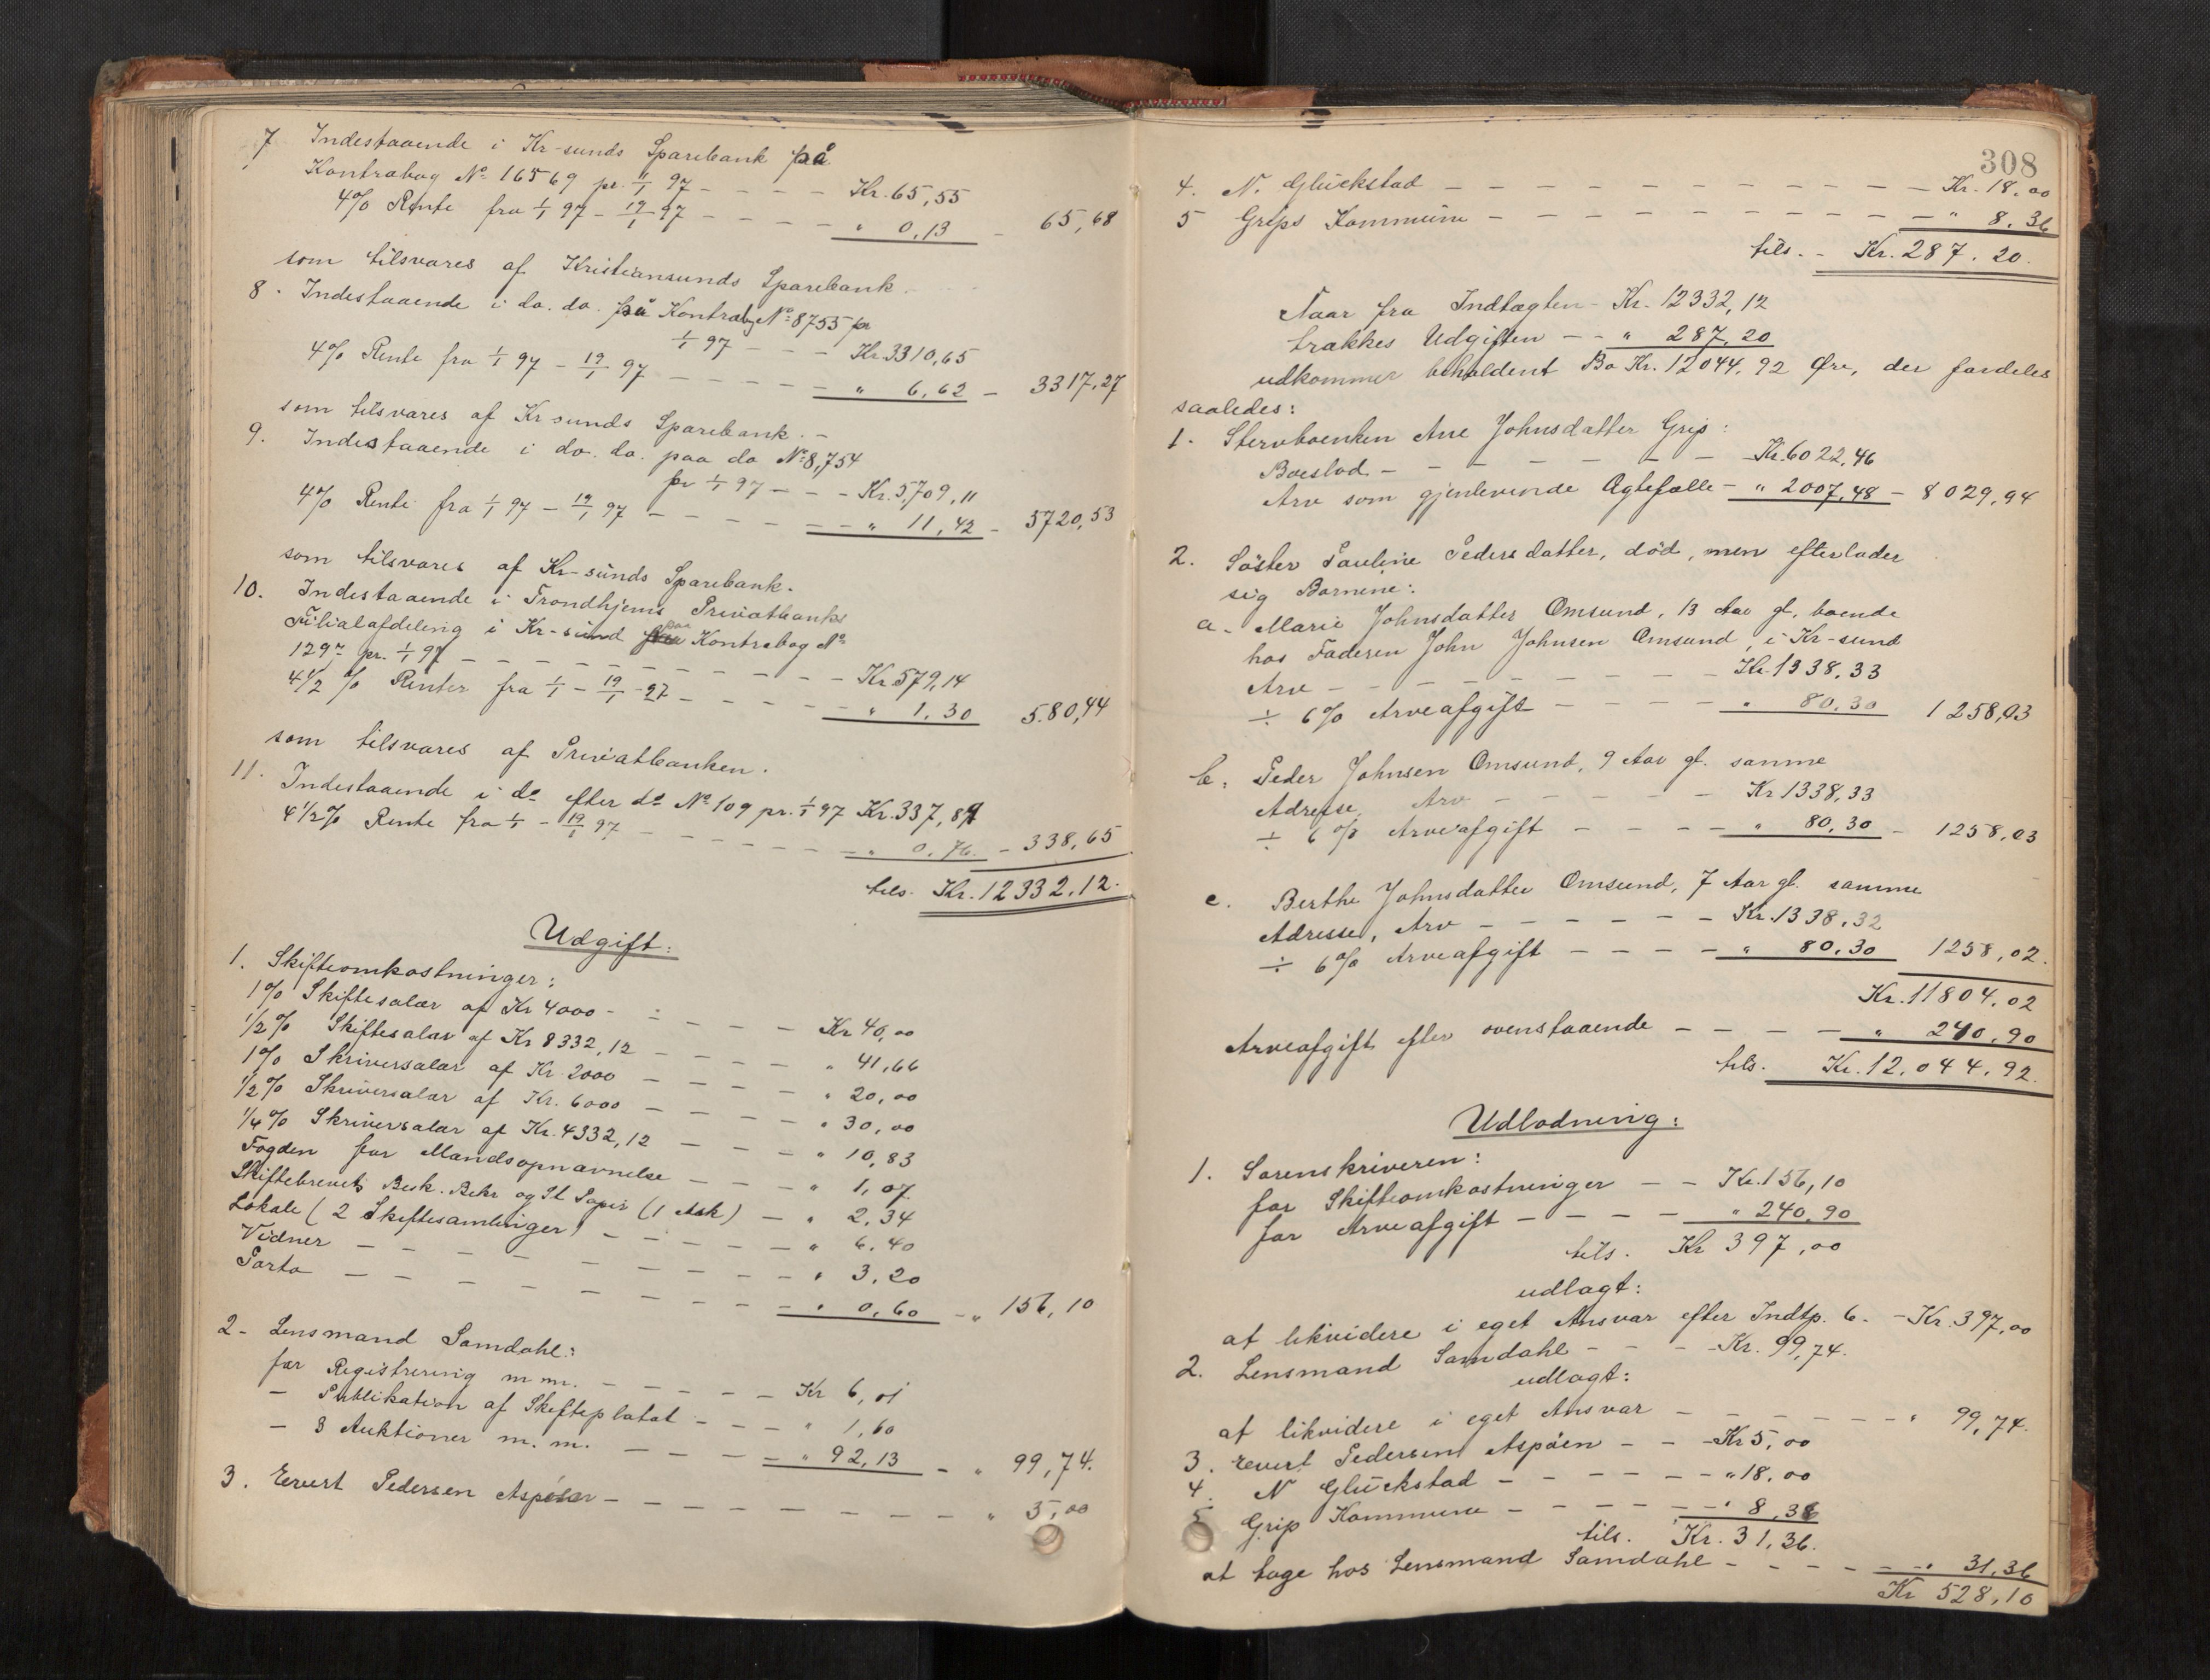 7 Indestaaende i Kr-sunds Sparebank på
Kontrabog No 16569 pr. 1/1 97 - - - - Kr. 65,55
4% Rente fra 1/1 97 - 19/1 97 - - - - " 0,13 - 65,68
som tilsvares af Kristiansunds Sparebank.
8. Indestaaende i do. do. på Kontrabg No 8755 pr
1/1 97 - - - Kr. 3310,65
4% Rente fra 1/1 97 - 19/1 97 - - - - - " 6,62 - 3317,27
som tilsvares af Kr sunds Sparebank. -
9. Indestaaende i do. do. paa do No 8,754
pr 1/1 97 - - - Kr. 5,709,11
4% Rente fra 1/1 97 - 19/1 97 - - - - - " 11,42 - 5720,53
som tilsvares af Kr-sunds Sparebank.
10. Indestaaende i Trondhjems Privatbanks
Filialafdeling i Kr-sund paa Kontrabog No
1297 pr. 1/1 97 - - - - - - - - - Kr. 579,14
4 1/2 % Renter fra 1/1 - 19/1 - 97 - - - - - " 1,30 580,44
som tilsvares af Privatbanken.
11. Indestaaende i do efter do No 109 pr. 1/1 97 Kr. 337,89
4 1/2% Rente fra 1/1 - 19/1 97 - - - - - - " 0,76 - 338,65
tils. Kr. 12332,12.
Udgift:
1. Skifteomkostninger:
1% Skiftesalær af Kr 4000 - - - - - Kr 40,00
1/2% Skiftesalær af Kr 8332,12 - - - - " 41,66
1% Skriversalær af Kr. 2000 - - - - " 20,00
1/2% Skriversalær af Kr. 6000 - - - - " 30,00
1/4% Skriversalær af Kr. 4332,12 - - - - " 10,83
Fogden for Mandsopnævnelse - - - - " 1,07
Skiftebrevets Besk. Bekr og St Papir (1 Ark) - " 2,34
Lokale (2 Skiftesamlinger) - - - - - " 6,40
Vidner - - - - - - - - " 3,20
Porto - - - - - - - - - " 0,60 - " 156,10
2 - Lensmand Samdahl:
for Registrering m m. - - - - - Kr 6,01
- Publikation af Skifteplakat - - - " 1,60
- 3 Auktioner m. m. - - - - - " 92,13 - " 99,74.
3. Evert Pedersen Aspøen - - - - - - - - - " 5,00
308
4. N. Glückstad - - - - - - - - - - - - Kr. 18,00
5 Grips Kommune - - - - - - - - - - - " 8,36
tils. - Kr. 287.20.
Naar fra Indtægten - Kr. 12332,12
trækkes Udgiften - - " 287,20
udkommer beholdent Bo Kr. 12044,92 Øre, der fordeles
saaledes:
1. Stervboenken Ane Johnsdatter Grip:
Boeslod - - - - - - - - Kr. 6022,46
Arv som gjenlevende Ægtefælle - " 2007,48 - 8029,94
2. Søster Pauline Pedersdatter, død, men efterlader
sig Børnene:
a - Marie Johnsdatter Omsund, 13 Aar gl. boende
hos Faderen John Johnsen Omsund, i Kr-sund
Arv - - - - - - - - - Kr. 1338,33
÷ 6% Arveafgift - - - - - " 80,30 1258,03
b. Peder Johnsen Omsund, 9 Aar gl. samme
Adresse, Arv - - - - - Kr 1338,33
÷ 6% Arveafgift - - - - " 80,30 - 1258,03
c. Berthe Johnsdatter Omsund, 7 Aar gl. samme
Adresse, Arv - - - - - - Kr. 1338,32
÷ 6% Arveafgift - - - - " 80,30 1258,02.
Kr. 11804,02
Arveafgift efter ovenstaaende - - - - " 240,90
tils. Kr. 12,044,92.
Udlodning:
1. Sorenskriveren:
for Skifteomkostninger - - Kr. 156,10
for Arveafgift - - - - " 240,90
tils. Kr 397,00
udlagt:
at likvidere i eget Ansvar efter Indtp. 6. - Kr. 397,00
2. Lensmand Samdahl - - - Kr. 99,74.
udlagt:
at likvidere i eget Ansvar - - - - - - - " 99,74.
3. Evert Pedersen Aspøen - - - Kr 5,00
4. N Glückstad - - - - - - " 18,00
5 Grip Kommune - - - - - - " 8,36
tils. Kr. 31,36.
at tage hos Lensmand Samdahl - - - - - " 31,36
Kr 528,10